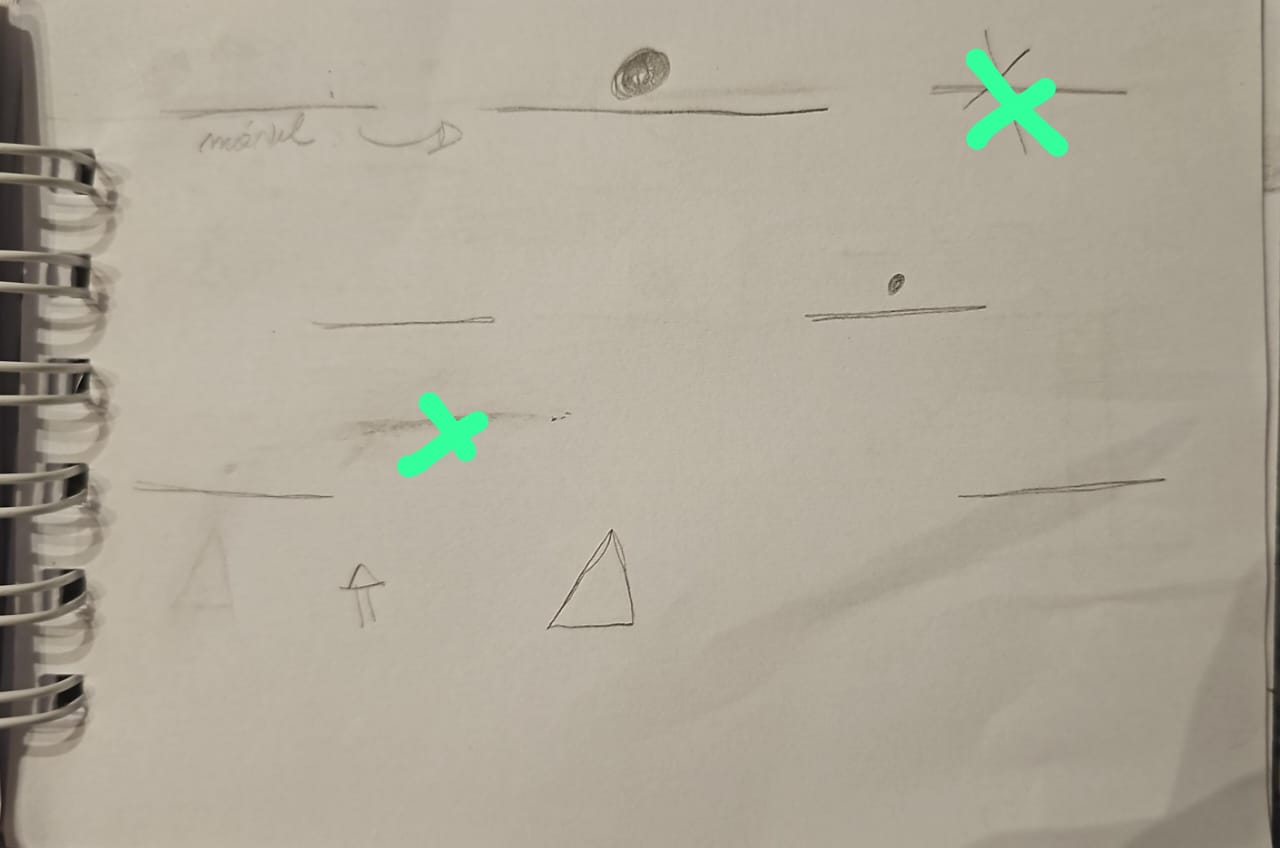 móvil